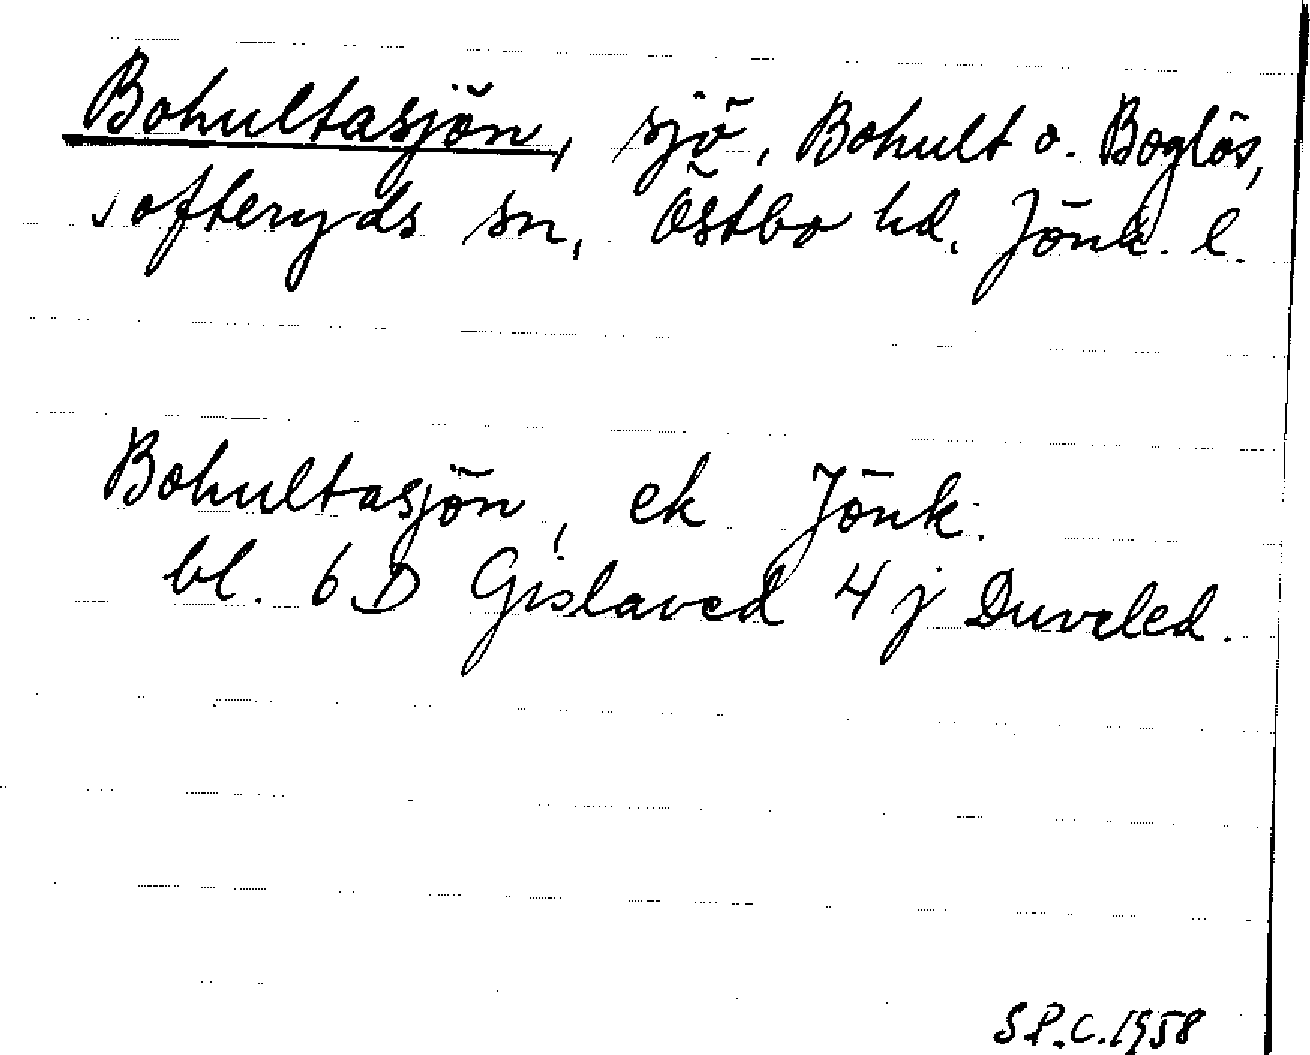 Bohultasjön, sjö, Bohult o. Boglös,
Tofteryds sn, Östbo hd. Jönk. l.
Bohultasjön, ek Jönk.
bl. 6 D Gislaved 4 j Duveled.
S.P.C. 1958